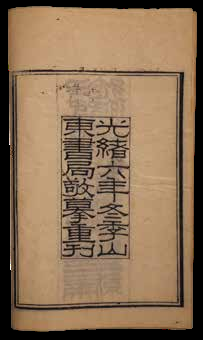 光緒六年冬季山
東書局敬摹重刊